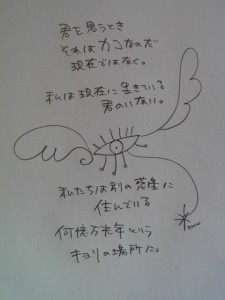 君を思うとき
それはカコなのだ
現在ではなく。
私は現在に生きている
君のいない。
私たちは別の惑星に
住んでいる
何億万光年という
キョリの場所に。